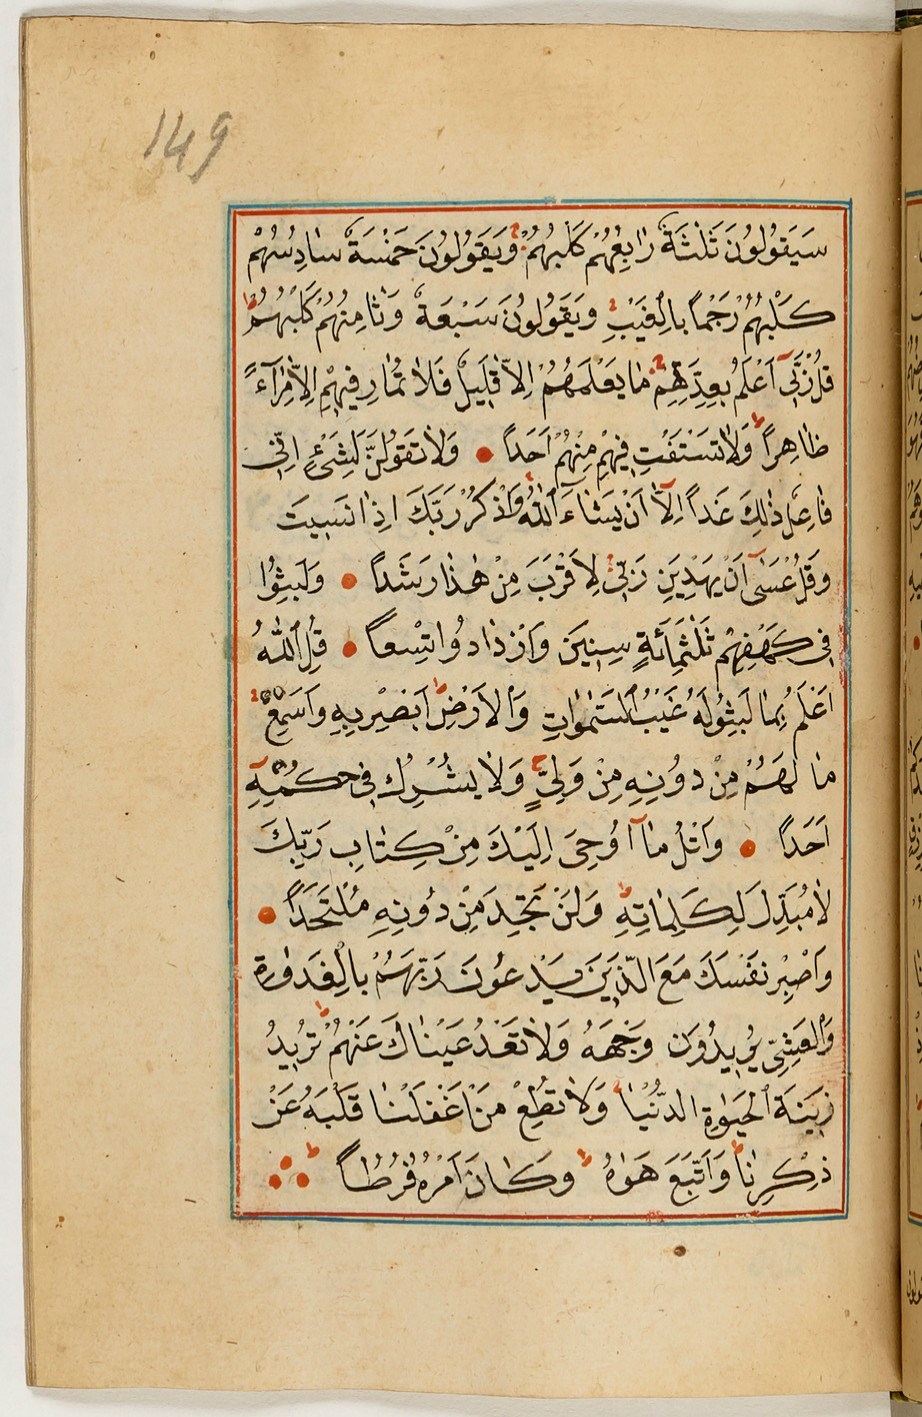 149
سَيَقُولُونَ ثَلٰثَةٌ رَابِعُهُمْ كَلْبُهُمْ وَيَقُولُونَ خَمْسَةٌ سَادِسُهُمْ
كَلْبُهُمْ رَجْمًا بِالْغَيْبِ وَيَقُولُونَ سَبْعَةٌ وَثَامِنُهُمْ كَلْبُهُمْ
قُلْ رَبّٖى اَعْلَمُ بِعِدَّتِهِمْ مَا يَعْلَمُهُمْ اِلَّا قَلٖيلٌ فَلَا تُمَارِ فٖيهِمْ اِلَّا مِرَٓاءً
ظَاهِرًا وَلَا تَسْتَفْتِ فٖيهِمْ مِنْهُمْ اَحَدًا ● وَلَا تَقُولَنَّ لِشَیْءٍ اِنّٖى
فَاعِلٌ ذٰلِكَ غَدًا اِلَّٓا اَنْ يَشَٓاءَ اللّٰهُ وَاذْكُرْ رَبَّكَ اِذَا نَسٖيتَ
وَقُلْ عَسٰٓى اَنْ يَهْدِيَنِ رَبّٖى لِاَقْرَبَ مِنْ هٰذَا رَشَدًا ● وَلَبِثُوا
فٖى كَهْفِهِمْ ثَلٰثَمِائَةٍ سِنٖينَ وَازْدَادُوا تِسْعًا ● قُلِ اللّٰهُ
اَعْلَمُ بِمَا لَبِثُوا لَهُ غَيْبُ السَّمٰوَاتِ وَالْاَرْضِ اَبْصِرْ بِهٖ وَاَسْمِعْ
مَا لَهُمْ مِنْ دُونِهٖ مِنْ وَلِىٍّ وَلَا يُشْرِكُ فٖى حُكْمِهٖٓ
اَحَدًا ● وَاتْلُ مَٓا اُوحِىَ اِلَيْكَ مِنْ كِتَابِ رَبِّكَ
لَا مُبَدِّلَ لِكَلِمَاتِهٖ وَلَنْ تَجِدَ مِنْ دُونِهٖ مُلْتَحَدًا ●
وَاصْبِرْ نَفْسَكَ مَعَ الَّذٖينَ يَدْعُونَ رَبَّهُمْ بِالْغَدٰوةِ
وَالْعَشِىِّ يُرٖيدُونَ وَجْهَهُ وَلَا تَعْدُ عَيْنَاكَ عَنْهُمْ تُرٖيدُ
زٖينَةَ الْحَيٰوةِ الدُّنْيَا وَلَا تُطِعْ مَنْ اَغْفَلْنَا قَلْبَهُ عَنْ
ذِكْرِنَا وَاتَّبَعَ هَوٰيهُ وَكَانَ اَمْرُهُ فُرُطًا